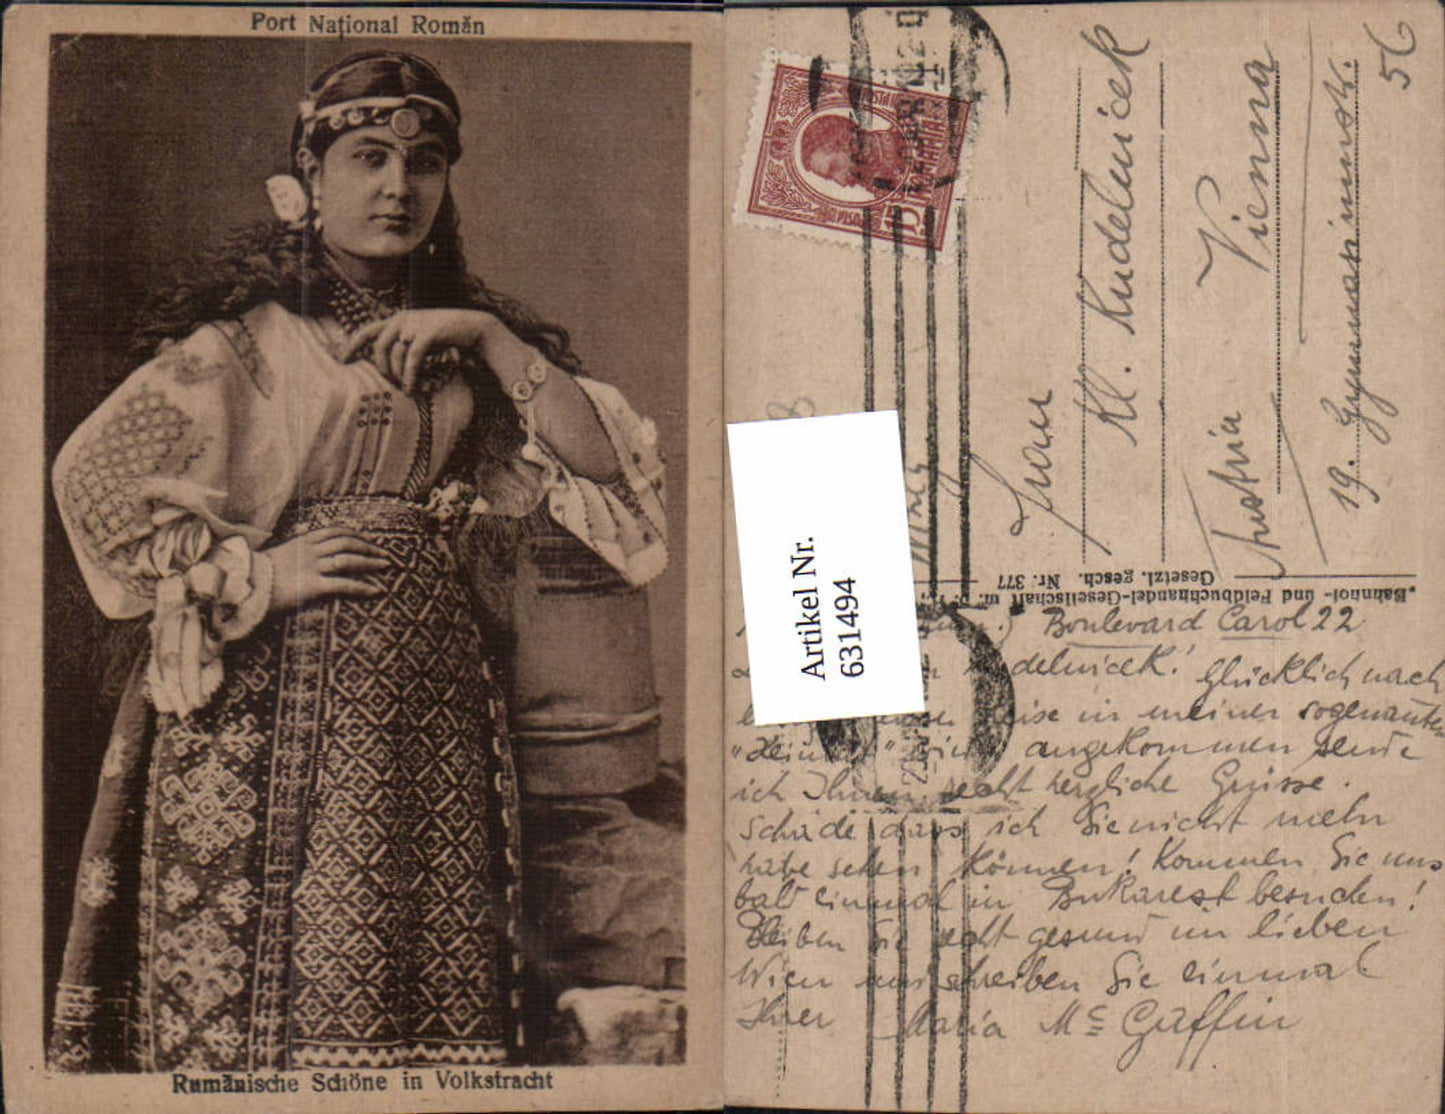 Port Național Român
Rumänische Schöne in Volkstracht
POSTA
ROMANIA
15
Artikel Nr.
631494
56
Frau
Kl. Kudelnicek
Austria Vienna
19. Gymnasiumstr.
"Bahnhof- und Feldbuchhandel-Gesellschaft m.
Gesetzl. gesch. Nr. 377
Boulevard Carol 22
delnicek! Glücklich nach
Reise in meiner sogenannten
angekommen sende
ich Ihnen recht herzliche Grüsse.
Schade dass ich Sie nicht mehr
habe sehen können! Kommen Sie uns
bald einmal in Bukarest besuchen!
Bleiben Sie recht gesund im lieben
Wien und schreiben Sie einmal
Ihrer Maria Mc Guffin